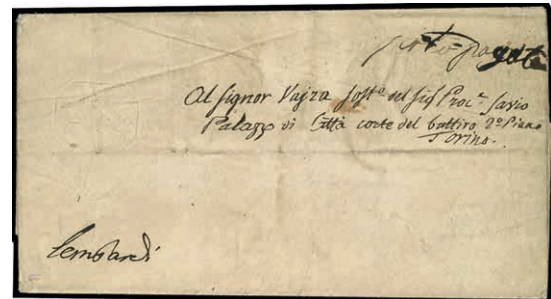 porto pagato
Al Signor Vajra Sostº. del Sigr Procr. Savio
Palazzo di Città corte del buttiro 2º Piano
Torino.
Lombardi